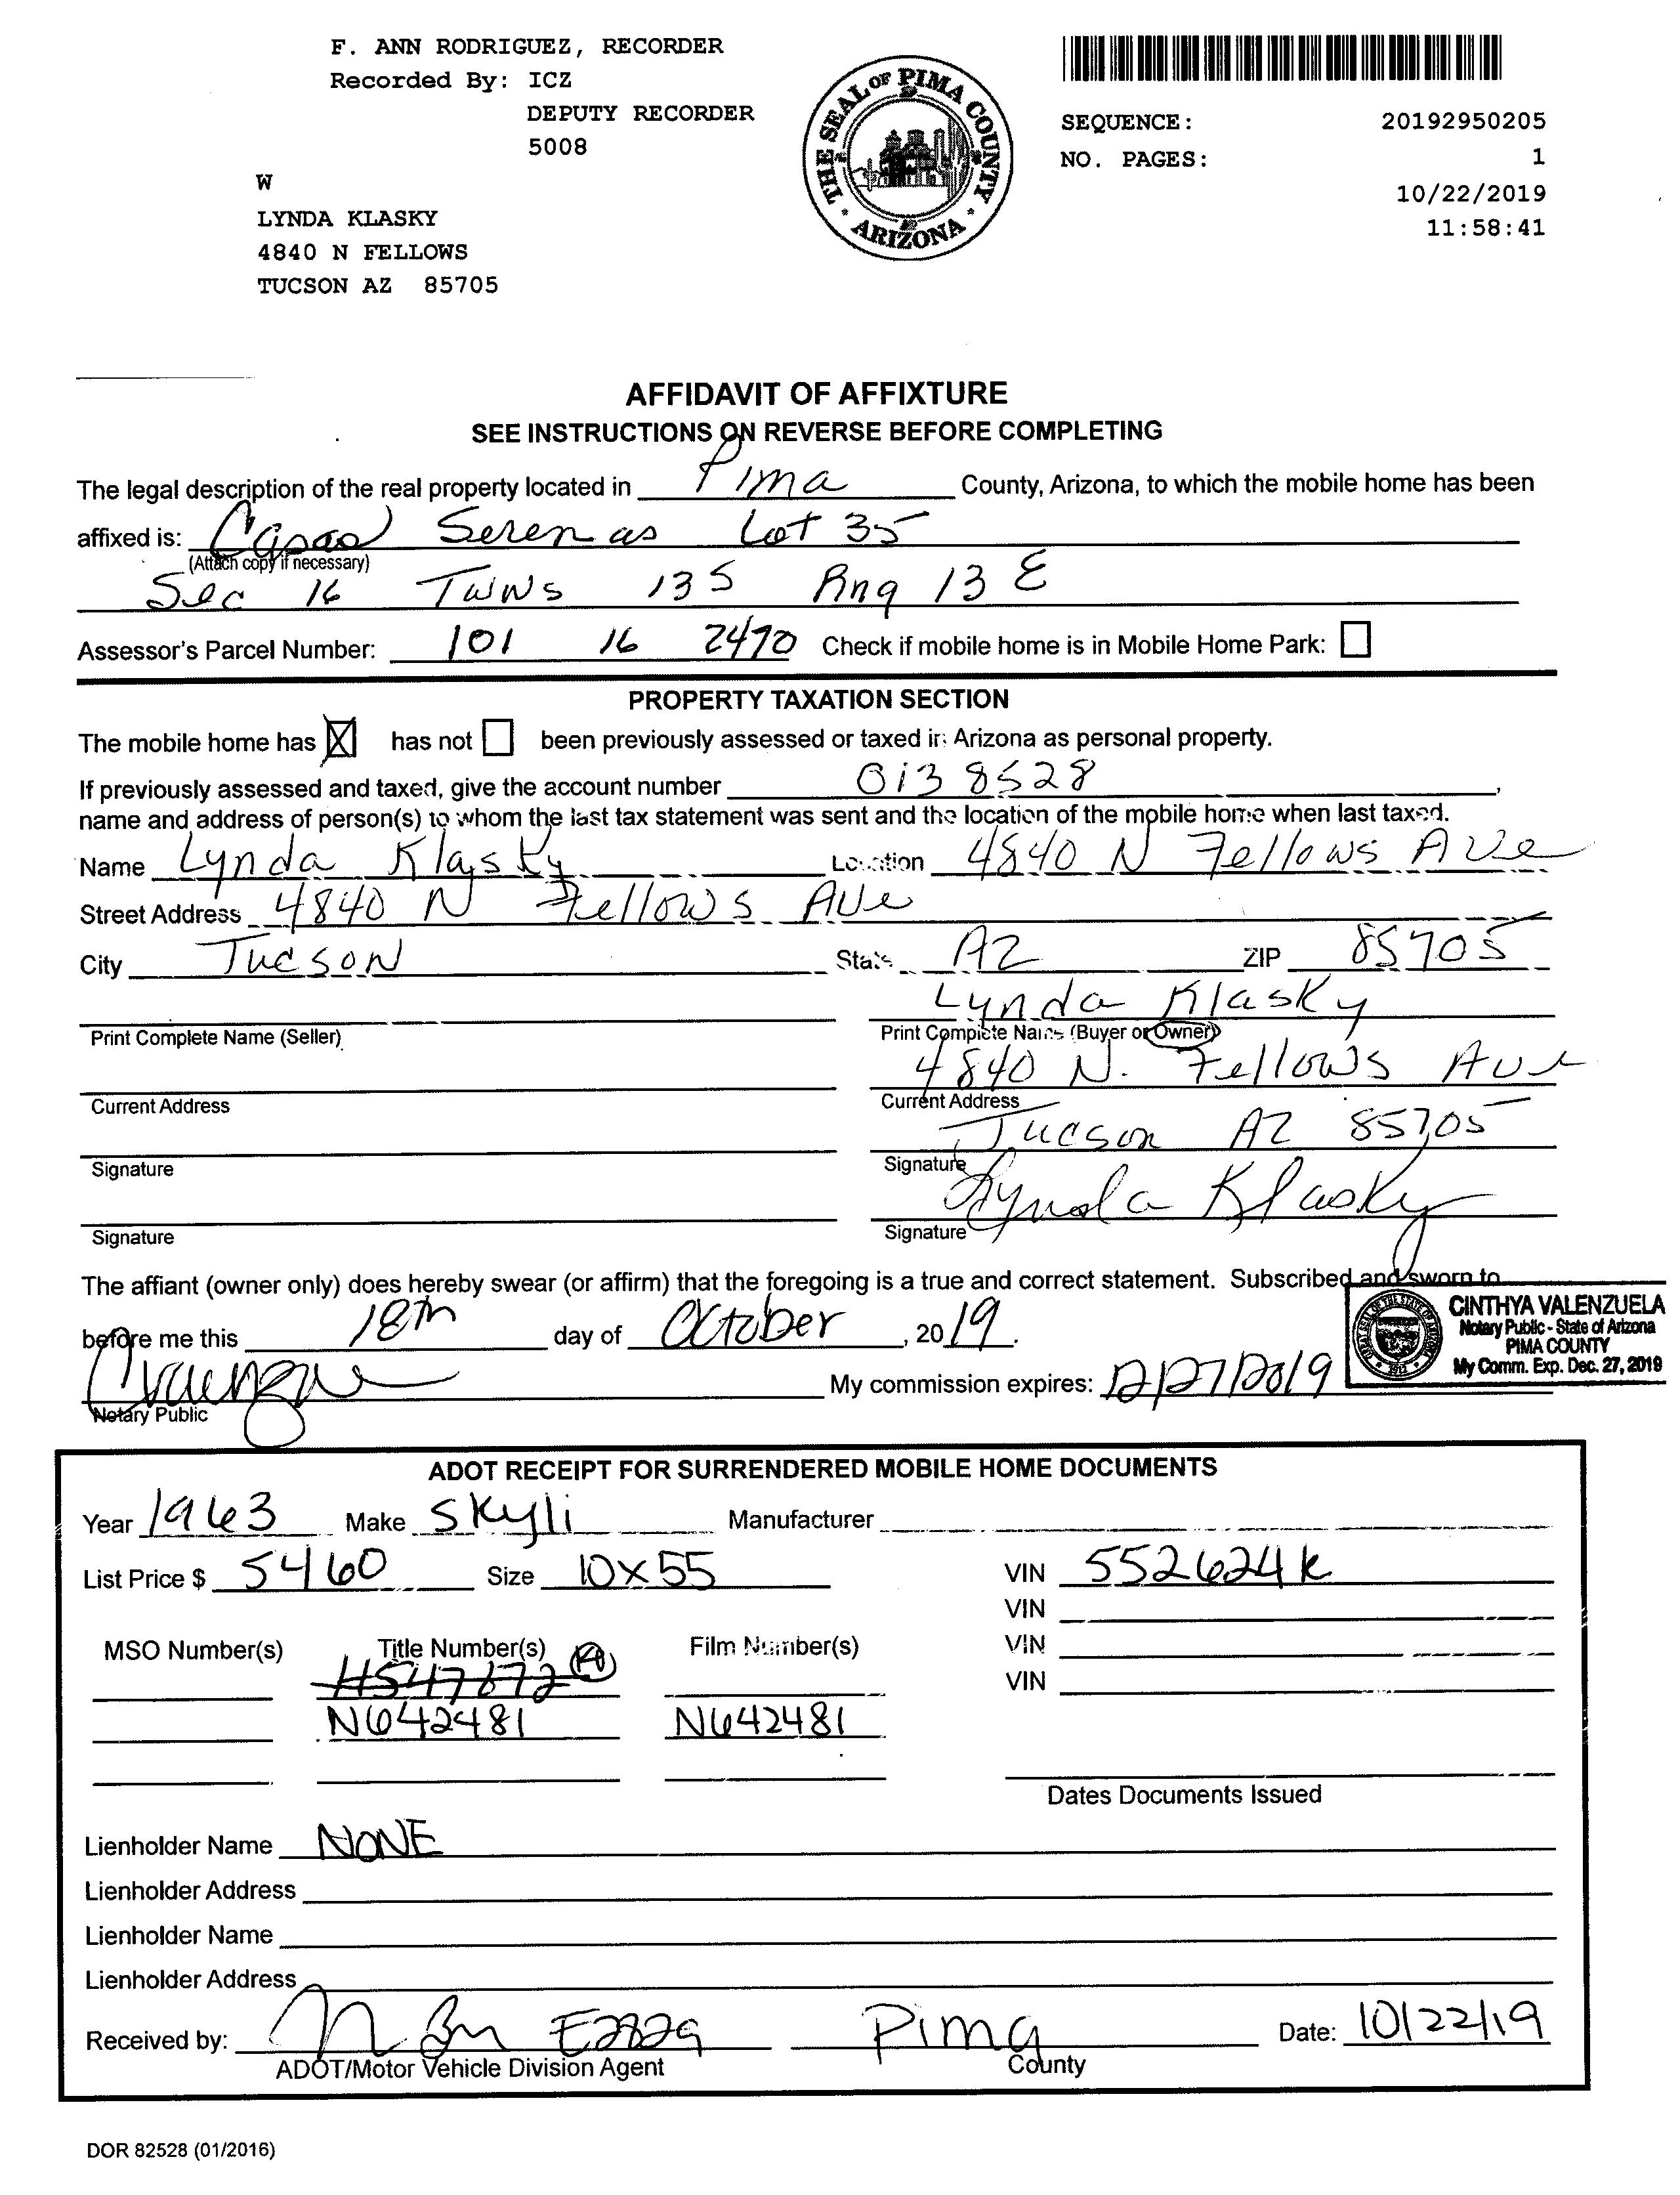 F. ANN RODRIGUEZ, RECORDER
Recorded By: ICZ
DEPUTY RECORDER
5008
W
LYNDA KLASKY
4840 N FELLOWS
TUCSON AZ 85705
THE SEAL OF PIMA COUNTY
ARIZONA
SEQUENCE: 20192950205
NO. PAGES: 1
10/22/2019
11:58:41
AFFIDAVIT OF AFFIXTURE
SEE INSTRUCTIONS ON REVERSE BEFORE COMPLETING
The legal description of the real property located in Pima County, Arizona, to which the mobile home has been
affixed is: Casas Serenas Lot 35
(Attach copy if necessary)
Sec 16 Twns 13 S Rng 13 E
Assessor's Parcel Number: 101 16 2470 Check if mobile home is in Mobile Home Park:
PROPERTY TAXATION SECTION
The mobile home has X has not been previously assessed or taxed in Arizona as personal property.
If previously assessed and taxed, give the account number 0138528,
name and address of person(s) to whom the last tax statement was sent and the location of the mobile home when last taxed.
Name Lynda Klasky Location 4840 N Fellows Ave
Street Address 4840 N Fellows Ave
City Tucson State AZ ZIP 85705
Lynda Klasky
Print Complete Name (Seller) Print Complete Name (Buyer or Owner)
4840 N. Fellows Ave
Current Address Current Address
Tucson AZ 85705
Signature Signature
Lynda Klasky
Signature Signature
The affiant (owner only) does hereby swear (or affirm) that the foregoing is a true and correct statement. Subscribed and sworn to
before me this 18th day of October, 2019.
CINTHYA VALENZUELA
Notary Public - State of Arizona
PIMA COUNTY
My Comm. Exp. Dec. 27, 2019
My commission expires: 12/27/2019
Notary Public
ADOT RECEIPT FOR SURRENDERED MOBILE HOME DOCUMENTS
Year 1963 Make Skyli Manufacturer
List Price $ 5460 Size 10x55 VIN 552624k
VIN
MSO Number(s) Title Number(s) Film Number(s) VIN
VIN
N642481 N642481
Dates Documents Issued
Lienholder Name NONE
Lienholder Address
Lienholder Name
Lienholder Address
Received by: Pima Date: 10/22/19
ADOT/Motor Vehicle Division Agent County
DOR 82528 (01/2016)